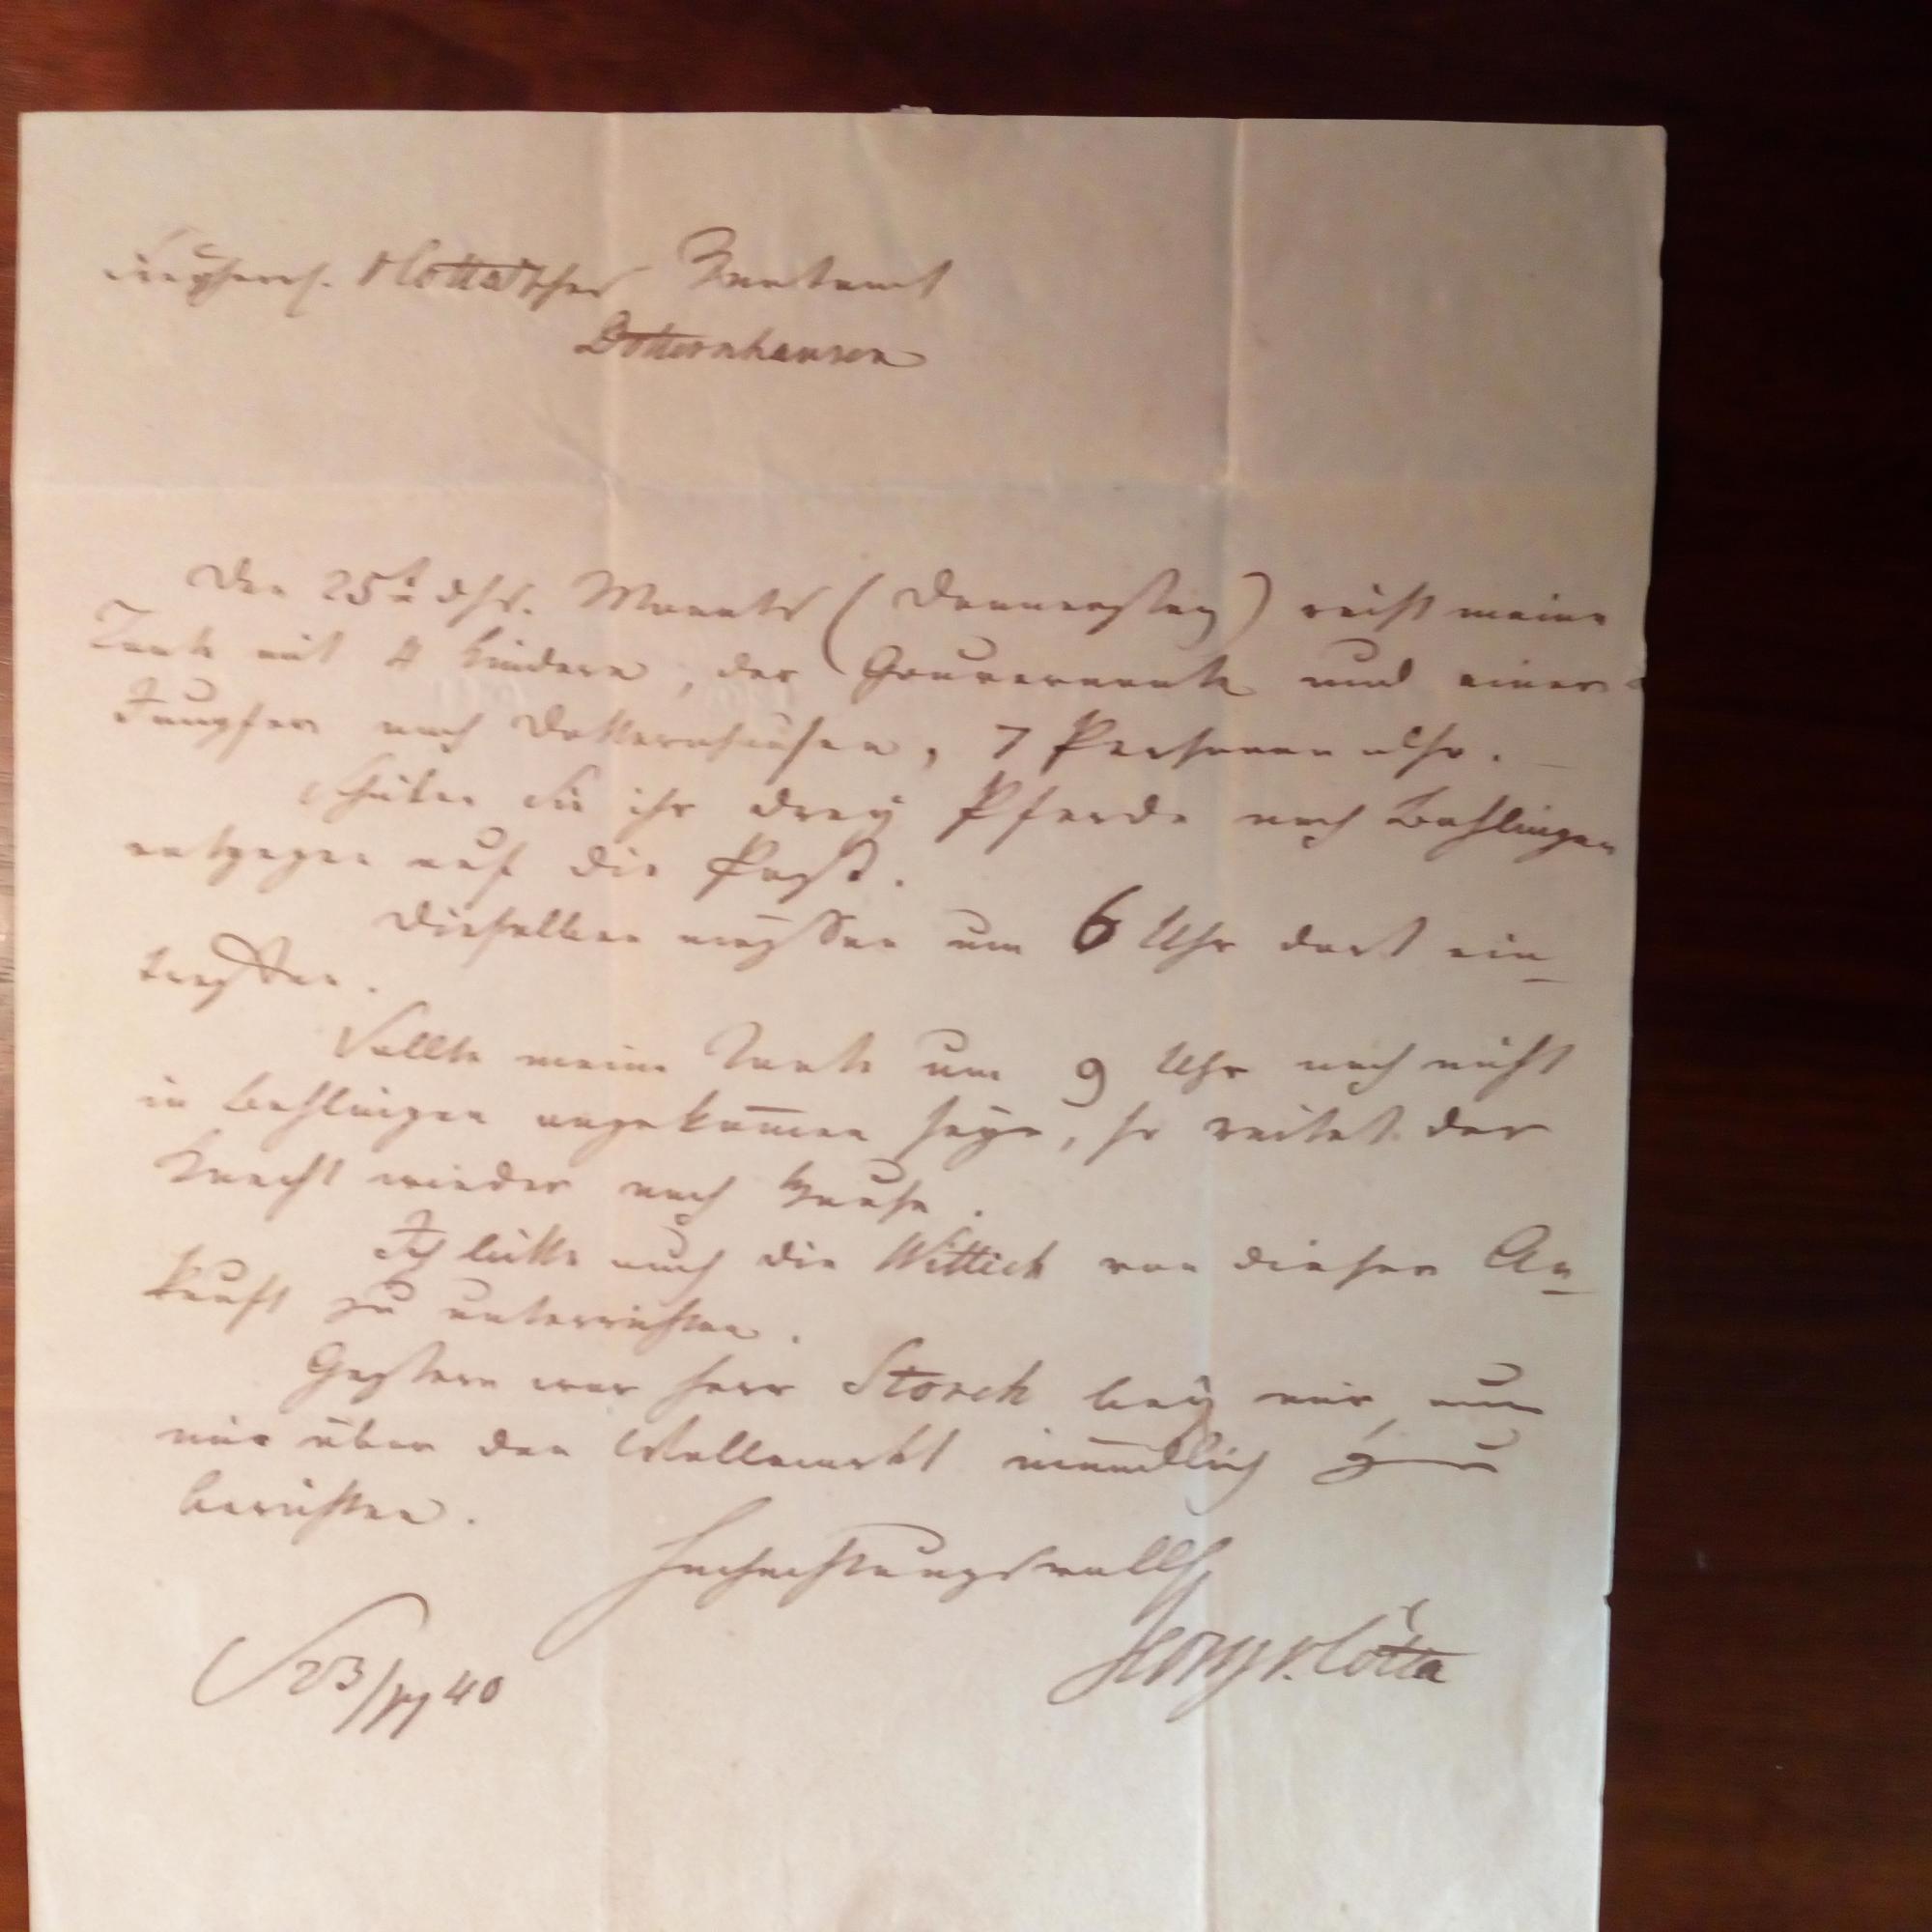 Freyherrl. v Cotta'sches Rentamt
Dotternhausen
Den 25t dss. Monats (Donnerstag) reist meine
Tante mit 4 Kindern, der Gouvernante und einer
Jungfer nach Dotternhausen, 7 Personen also.
Schiken Sie ihr drey Pferde nach Bahlingen
entgegen auf die Post.
Dieselben müssen um 6 Uhr dort ein-
treffen.
Sollte meine Tante um 9 Uhr noch nicht
in Bahlingen angekom̄en seyn, so reitet der
Knecht wieder nach Hause.
Ich bitte auch die Wittich von dieser An-
kunft zu unterrichten.
Gestern war Herr Storch bey mir, um
mir über den Wollmarkt mündlich zu
berichten.
Hochachtungsvollst
Georg v. Cotta
S 23/ 40